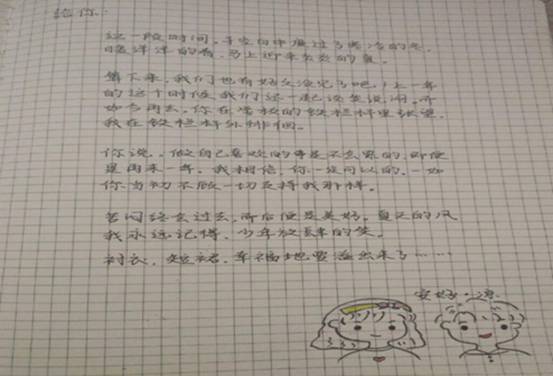 给你:
这一段时间,平安自中度过了寒冷的冬,
暖洋洋的春,马上迎来炎炎的夏。
算下来,我们也有好久没见了吧,上一年
的这个时候我们还一起说笑谈闹,而
如今再去,你在学校的铁栏杆里张望,
我在铁栏杆外徘徊。
你说,做自己喜欢的事是不会累的,即便
是再来一年。我相信,你一定可以的,一如
你当初不顾一切支持我那样。
苦闷终会过去,而后便是美好,夏天的风
我永远记得,少年放肆的笑。
衬衣,短裙,幸福地要溢出来了……
安好,